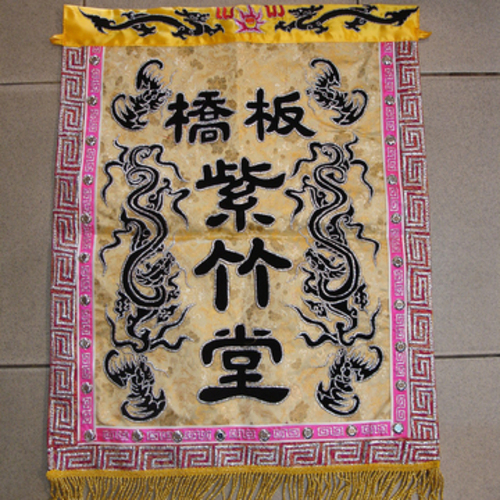 板橋
紫竹堂